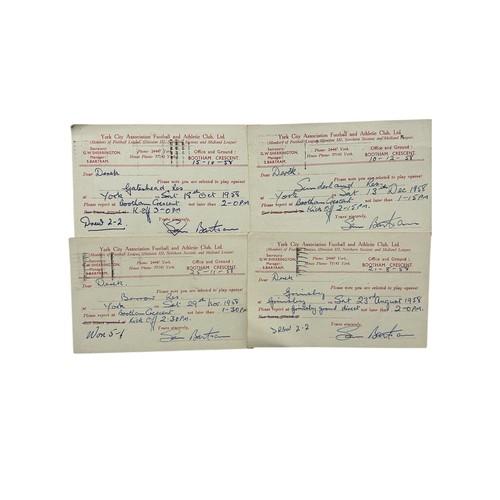 York City Association Football and Athletic Club, Ltd.
(Members of Football League, Division III, Northern Section and Midland League)
Secretary:
G.W.SHERRINGTON.
Manager:
S.BARTRAM.
Phone 24447 York.
House Phone: 77141 York.
Office and Ground:
BOOTHAM CRESCENT,
15-10-58
Dear Derek
Please note you are selected to play against
Gateshead Res
at York on Sat 18th Oct 1958
Please report at Bootham Crescent not later than 2-0PM
K.off 3-0PM
Yours sincerely,
Drew 2-2
Sam Bartram
York City Association Football and Athletic Club, Ltd.
(Members of Football League, Division III, Northern Section and Midland League)
Secretary:
G.W.SHERRINGTON.
Manager:
S.BARTRAM.
Phone: 24447 York.
House Phone: 77141 York.
Office and Ground:
BOOTHAM CRESCENT,
10-12-58
Dear Derek
Please note you are selected to play against
Sunderland Res
at York on Sat 13th Dec 1958
Please report at Bootham Crescent not later than 1-15PM
Kick Off 2-15PM.
Yours sincerely,
Sam Bartram
York City Association Football and Athletic Club, Ltd.
(Members of Football League, Division III, Northern Section and Midland League)
Secretary:
G.W.SHERRINGTON.
Manager:
S.BARTRAM.
Phone: 24447 York.
House Phone: 77141 York.
Office and Ground:
BOOTHAM CRESCENT,
Dear Derek
Please note you are selected to play against
Barrow Res
at York on Sat 29th Nov. 1958
Please report at Bootham Crescent not later than 1-30PM
Kick Off 2.30PM.
Yours sincerely,
Won 5-1
Sam Bartram
York City Association Football and Athletic Club, Ltd.
(Members of Football League, Division III, Northern Section and Midland League)
Secretary:
G.W.SHERRINGTON.
Manager:
S.BARTRAM.
Phone: 24447 York.
House Phone: 77141 York.
Office and Ground:
BOOTHAM CRESCENT,
21-8-58
Dear Derek.
Please note you are selected to play against
Grimsby
at Grimsby on Sat 23rd August 1958
Please report at Grimsby ground direct not later than 2-0PM.
Yours sincerely,
DREW 2-2
Sam Bartram